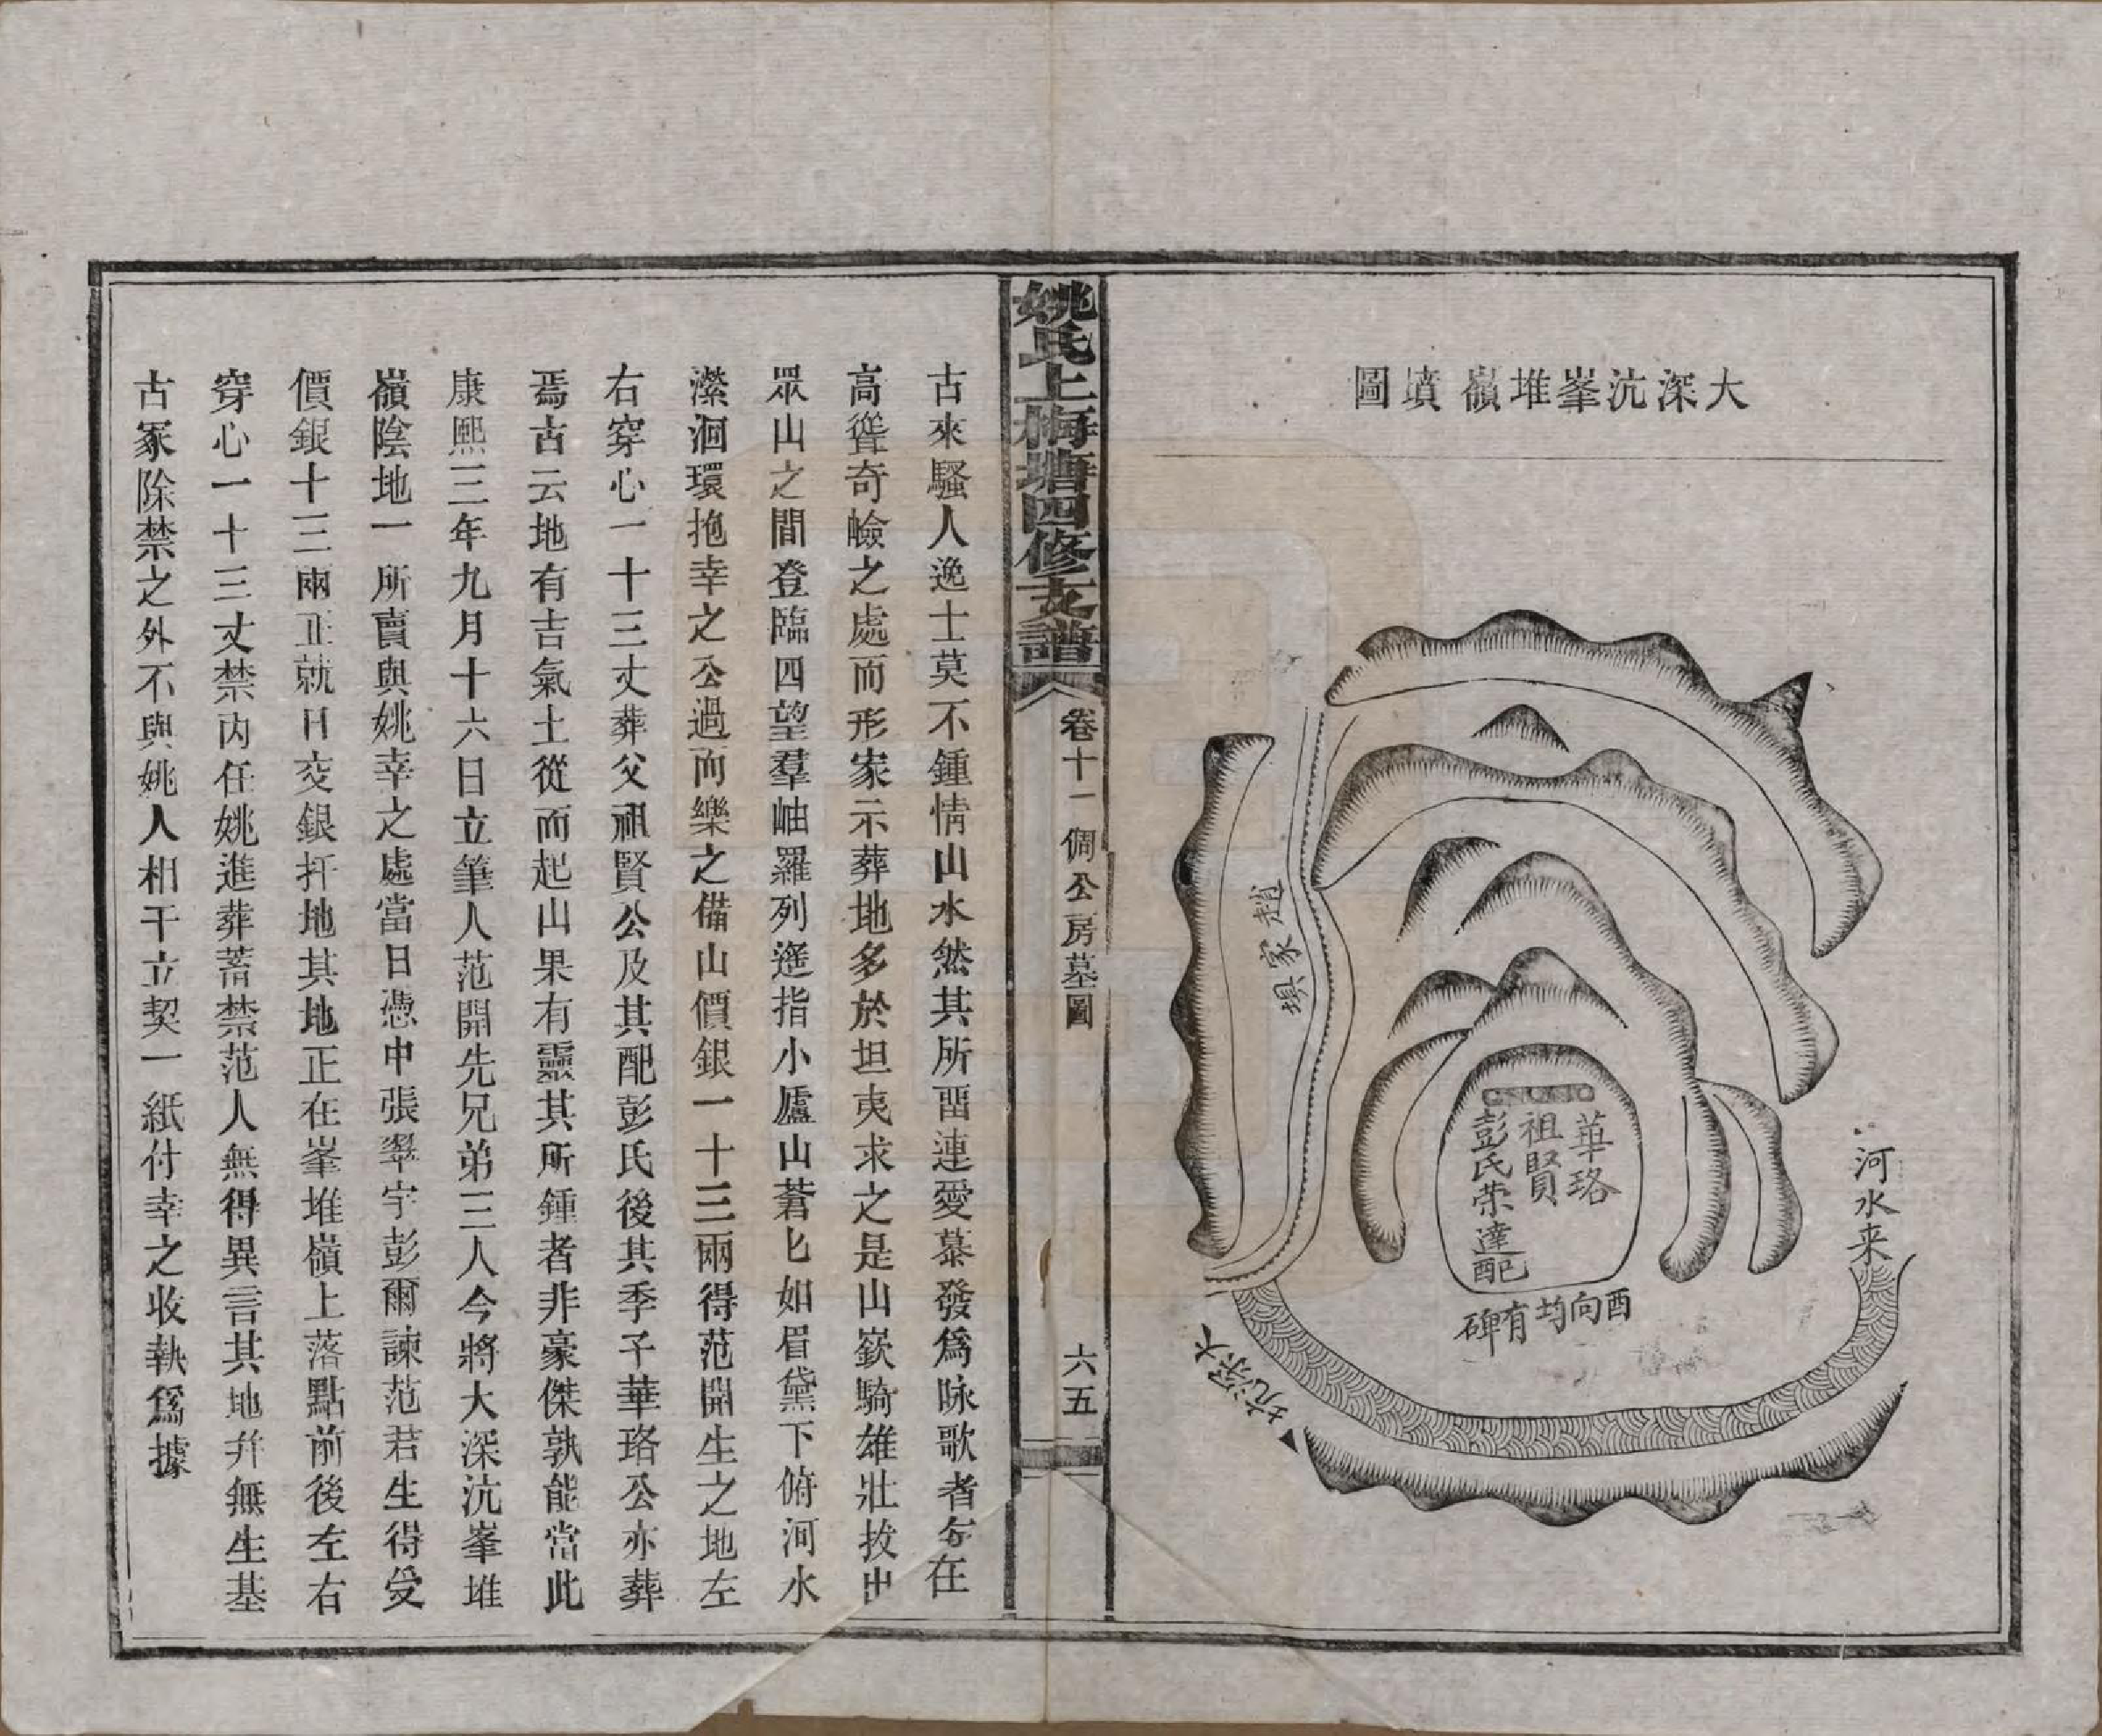 大深沆峯堆嶺墳圖
趙家埧
華珞
祖賢
彭氏荣達配
酉向均有碑
河水来
大深坑
姚氏上梅塘四修支譜
卷十一 倜公房墓圖
六五
古來騷人逸士莫不鍾情山水然其所畱連愛慕發爲咏歌者每在
高聳奇嶮之處而形家示葬地多於坦夷求之是山嶔騎雄壯拔出
眾山之間登臨四望羣岫羅列遙指小廬山蒼匕如眉黛下俯河水
濴洄環抱幸之公過而樂之備山價銀一十三兩得范開生之地左
右穿心一十三丈葬父祖賢公及其配彭氏後其季子華珞公亦葬
焉古云地有吉氣土從而起山果有靈其所鍾者非豪傑孰能當此
康熙三年九月十六日立筆人范開先兄弟三人今將大深沆峯堆
嶺陰地一所賣與姚幸之處當日憑中張翠宇彭爾諫范君生得受
價銀十三兩正就日交銀扦地其地正在峯堆嶺上落點前後左右
穿心一十三丈禁內任姚進葬蓄禁范人無得異言其地幷無生基
古冢除禁之外不與姚人相干立契一紙付幸之收執爲據